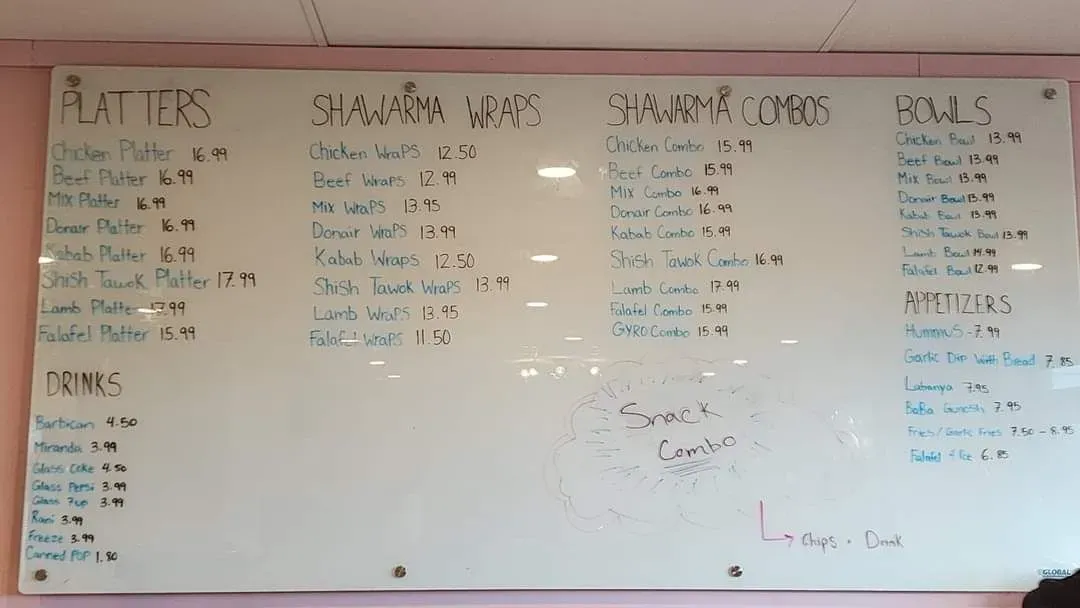 PLATTERS
Chicken Platter 16.99
Beef Platter 16.99
Mix Platter 16.99
Donair Platter 16.99
Kabab Platter 16.99
Shish Tawok Platter 17.99
Lamb Platter 17.99
Falafel Platter 15.99
DRINKS
Barbican 4.50
Miranda 3.99
Glass Coke 4.50
Glass Pepsi 3.99
Glass 7up 3.99
Rani 3.99
Freeze 3.99
Canned POP 1.80
SHAWARMA WRAPS
Chicken WraPS 12.50
Beef WraPS 12.99
Mix WraPS 13.95
Donair WraPS 13.99
Kabab Wraps 12.50
Shish Tawok WraPS 13.99
Lamb WraPS 13.95
Falafel WraPS 11.50
SHAWARMA COMBOS
Chicken Combo 15.99
Beef Combo 15.99
Mix Combo 16.99
Donair Combo 16.99
Kabab Combo 15.99
Shish Tawok Combo 16.99
Lamb Combo 17.99
Falafel Combo 15.99
GYRO Combo 15.99
Snack
Combo
Chips + Drink
BOWLS
Chicken Bowl 13.99
Beef Bowl 13.99
Mix Bowl 13.99
Donair Bowl 13.99
Kabab Bowl 13.99
Shish Tawok Bowl 13.99
Lamb Bowl 14.99
Falafel Bowl 12.99
APPETIZERS
HummuS - 7.99
Garlic Dip With Bread 7.85
Labanya 7.95
BaBa Gunosh 7.95
Fries/Garlic Fries 7.50 - 8.95
Falafel 4 Pce 6.85
GLOBAL